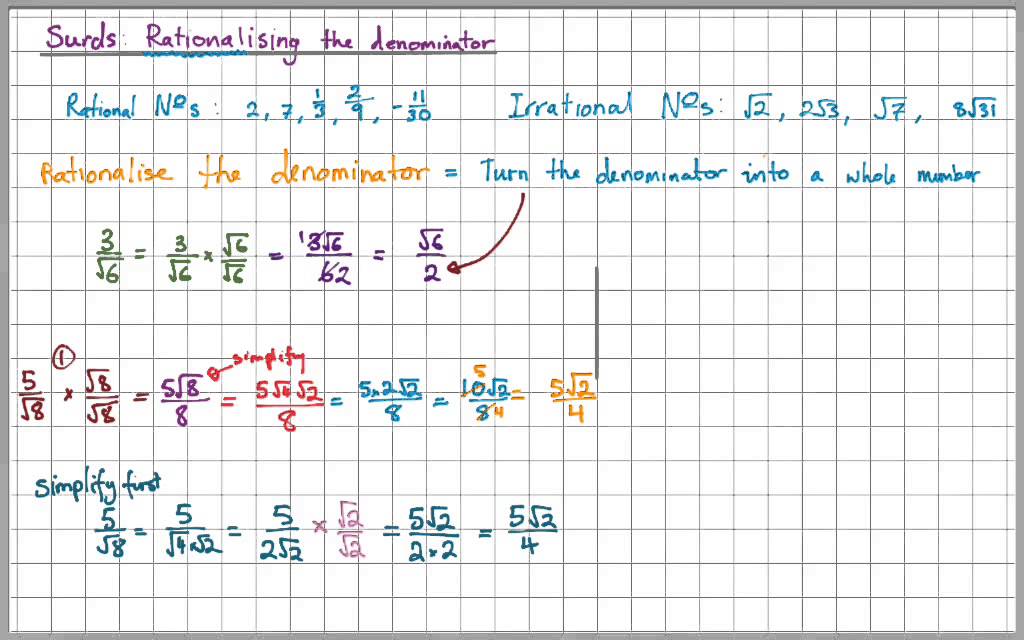 Surds: Rationalising the denominator
Rational Nºs : 2, 7, 1/3, 2/9, -11/30 Irrational Nºs: √2, 2√3, √7, 8√31
Rationalise the denominator = Turn the denominator into a whole number
3/√6 = 3/√6 × √6/√6 = ¹3√6/62 = √6/2
① simplify
5/√8 × √8/√8 = 5√8/8 = 5√4√2/8 = 5×2√2/8 = 10√2/8 5/4 = 5√2/4
Simplify first
5/√8 = 5/√4×√2 = 5/2√2 × √2/√2 = 5√2/2×2 = 5√2/4